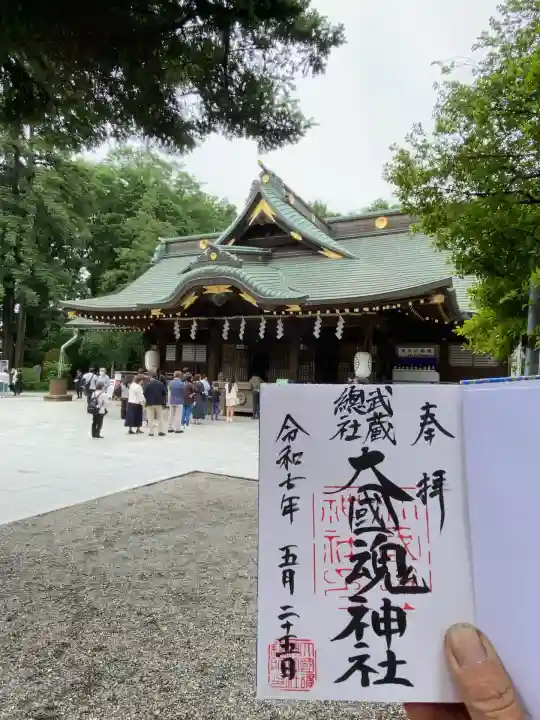 奉拝
武蔵
總社
大國魂神社
令和七年 五月二十五日